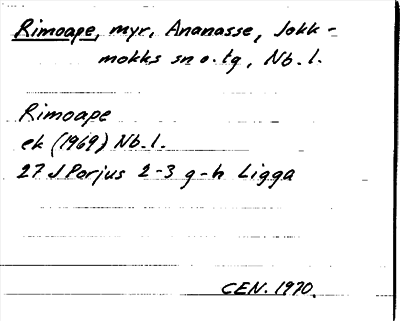 Rimoape, myr, Ananasse, Jokk-
mokks sn o. tg, Nb. l.
Rimoape
ek (1969) Nb. l.
27 J Porjus 2-3 g-h Ligga
CEN. 1970.